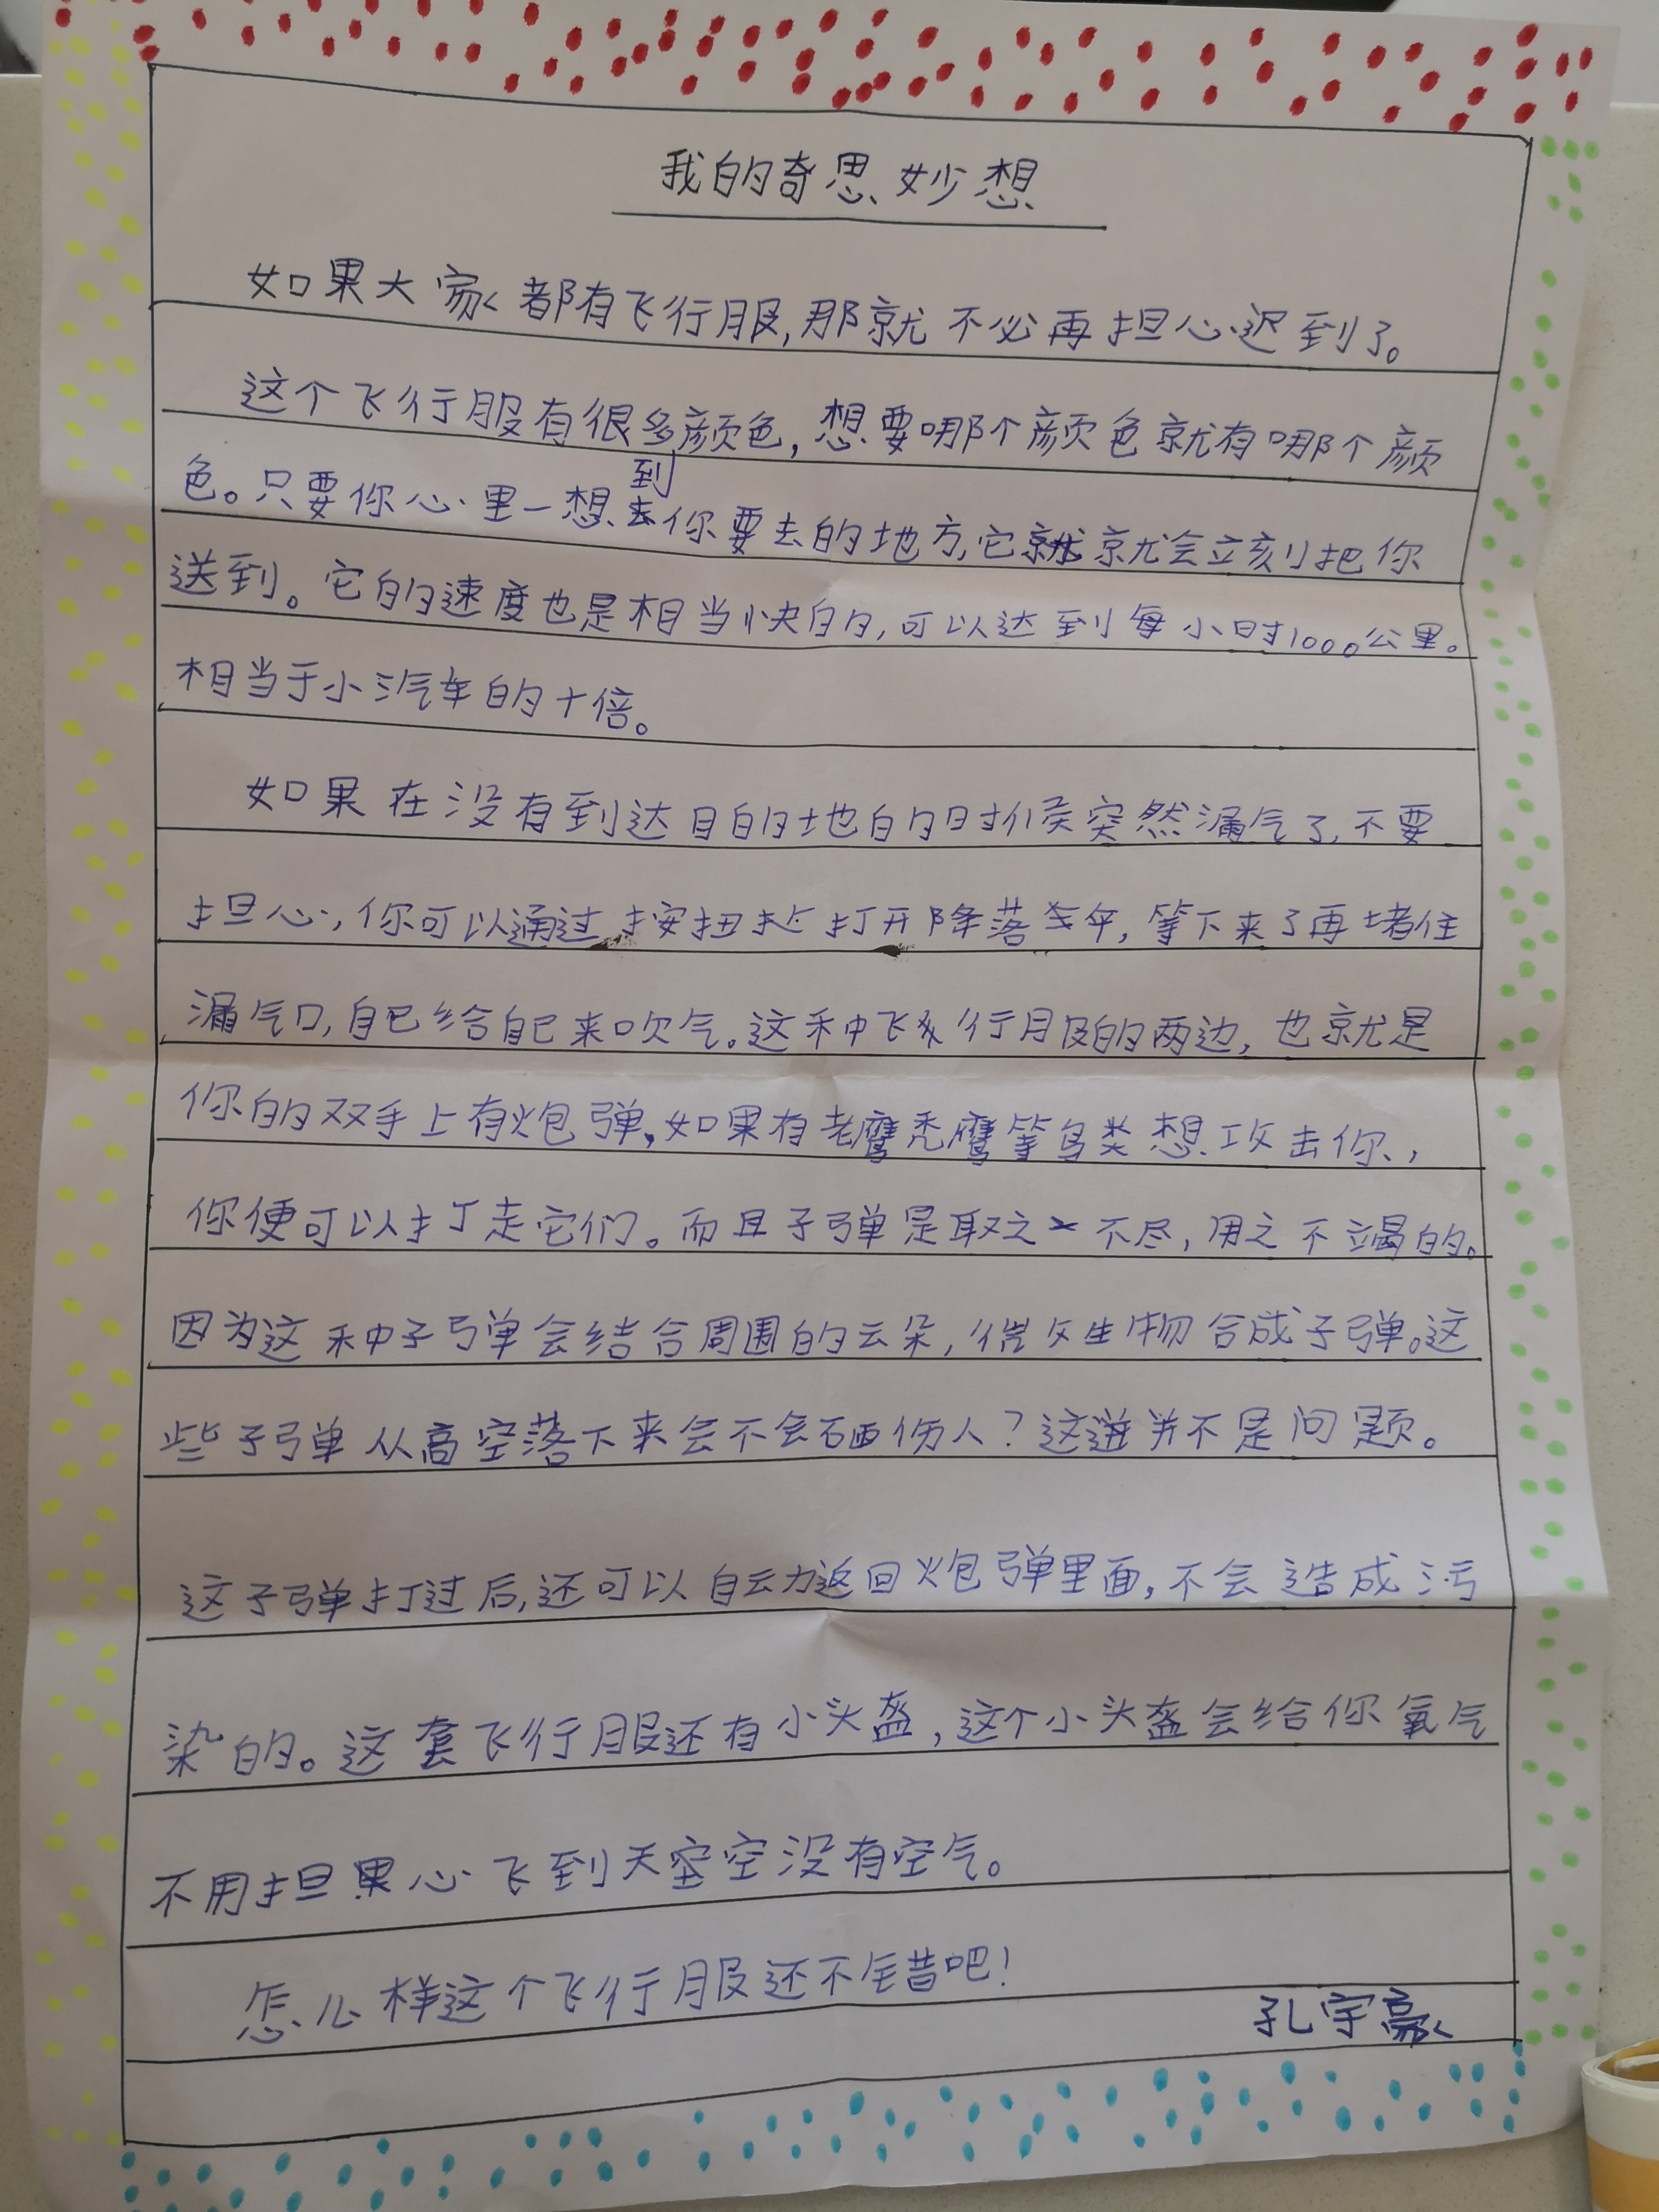 我的奇思妙想
如果大家都有飞行服,那就不必再担心迟到了。
这个飞行服有很多颜色,想要哪个颜色就有哪个颜
色。只要你心里一想到你要去的地方,它就会立刻把你
送到。它的速度也是相当快的,可以达到每小时1000公里。
相当于小汽车的十倍。
如果在没有到达目的地的时候突然漏气了,不要
担心,你可以通过按扭处打开降落伞,等下来了再堵住
漏气口,自己给自己来吹气。这种飞行服的两边,也就是
你的双手上有炮弹,如果有老鹰秃鹰等鸟类想攻击你,
你便可以打走它们。而且子弹是取之不尽,用之不竭的。
因为这种子弹会结合周围的云朵,微生物合成子弹。这
些子弹从高空落下来会不会砸伤人?这并不是问题。
这子弹打过后,还可以自动返回炮弹里面,不会造成污
染的。这套飞行服还有小头盔,这个小头盔会给你氧气
不用担心飞到天空没有空气。
怎么样这个飞行服还不错吧!
孔宇豪